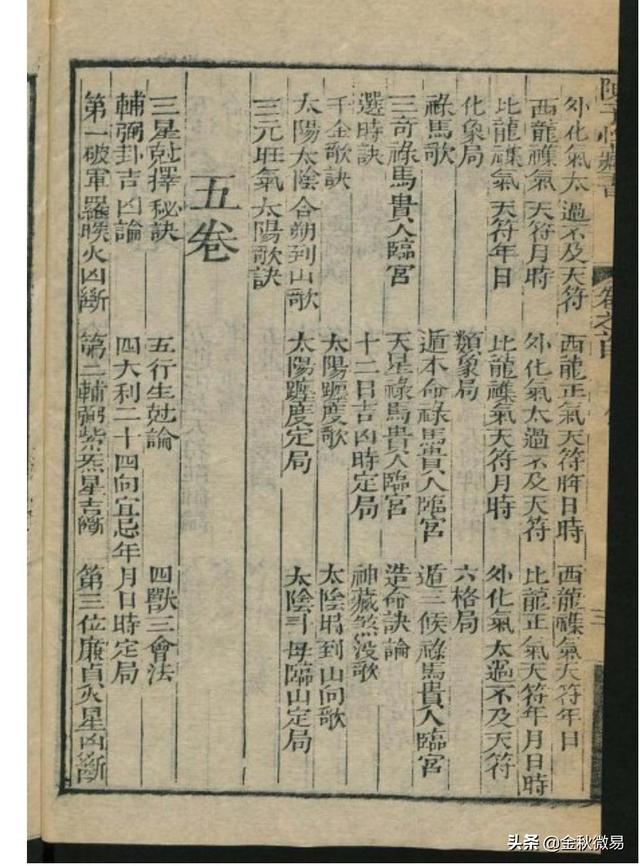 外化氣太過不及天符 西龍正氣天符年日時 西龍襍氣天符年日
西龍襍氣天符月時 外化氣太過不及天符 比龍正氣天符年月日時
比龍襍氣天符年日 比龍襍氣天符月時 外化氣太過不及天符
化象局 類象局 六格局
祿馬歌 遁本命祿馬貴人臨宮 遁三候祿馬貴人臨宮
三奇祿馬貴人臨宮 天星祿馬貴人臨宮 造命訣論
選時訣 十二日吉凶時定局 神藏煞沒歌
千金歌訣 太陽躔度歌 太陰到山向歌
太陽太陰合朔到山歌 太陽躔度定局 太陰臨山定局
三元旺氣太陽歌訣
五卷
三星尅擇秘訣 五行生尅論 四獸三會法
輔弼卦吉凶論 四大利二十四向宜忌年月日時定局
第一破軍羅睺火凶斷 第二輔弼紫炁星吉斷 第三位廉貞火星凶斷
頭条 @金秋微易